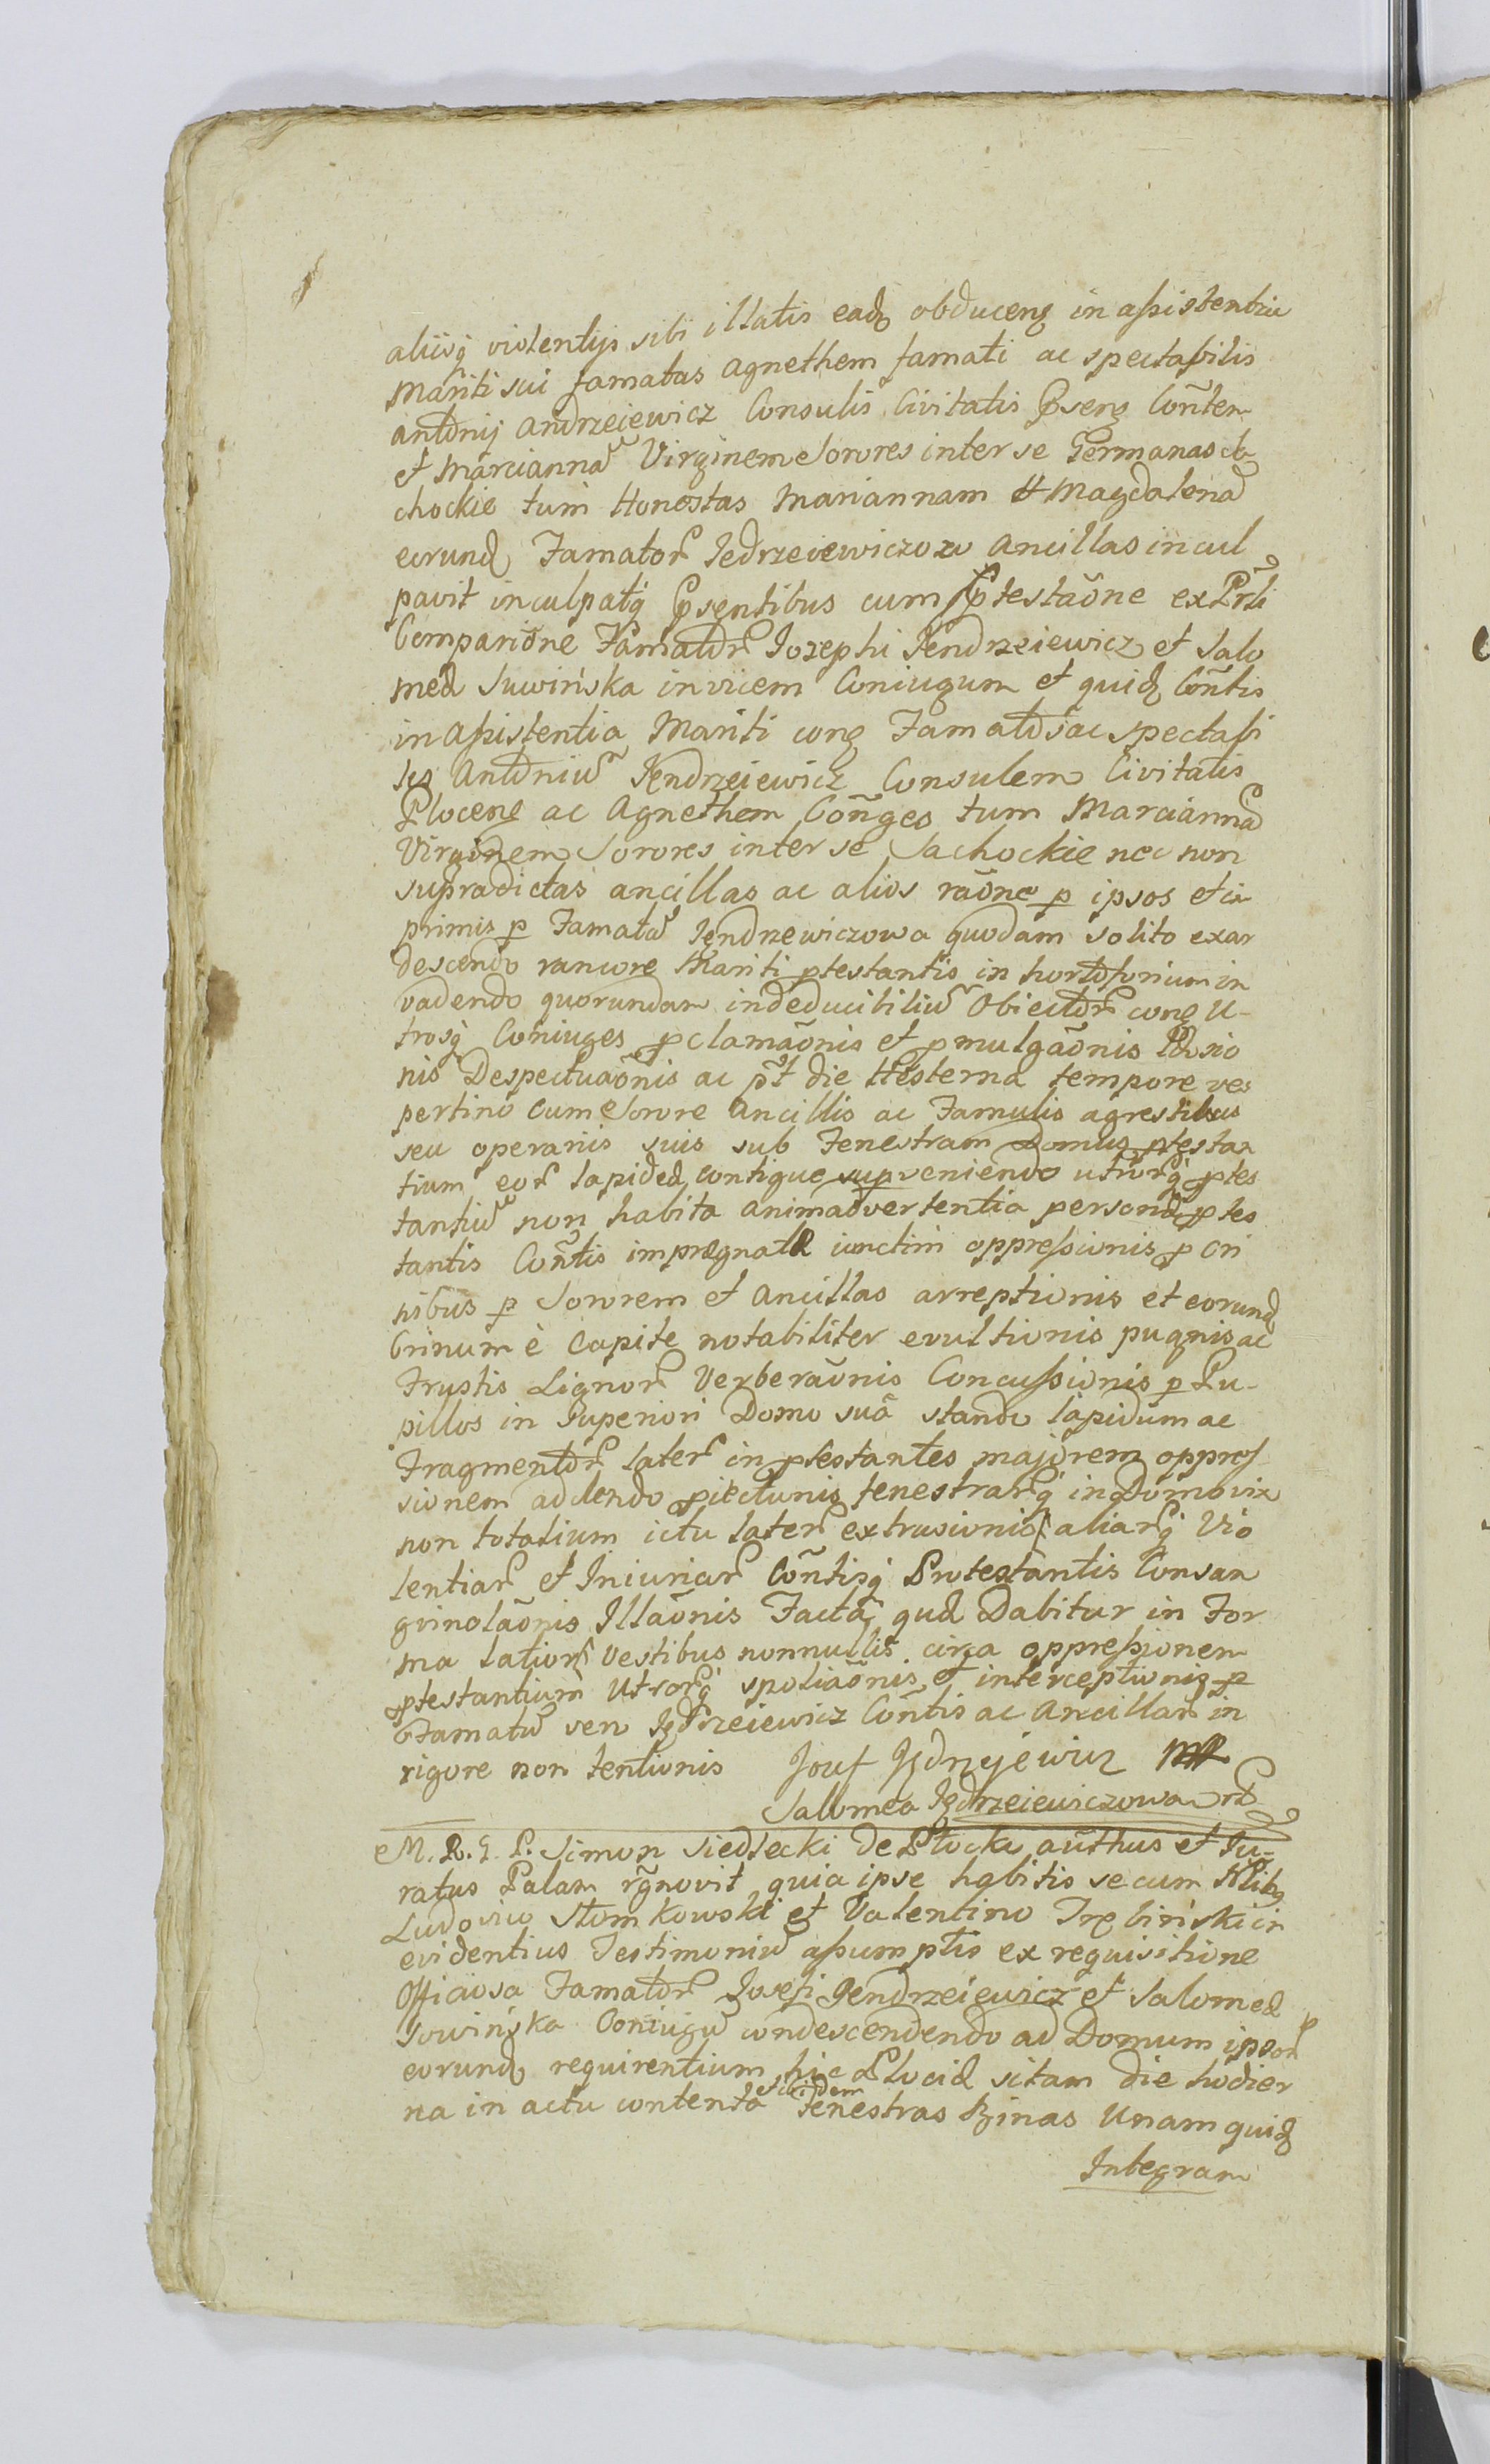 aliisq violentijs sibi illatis eadq obducenq in assistentia
Mariti sui famatas Agnethem famati ac spectabilis
Antonij Andrzeiewicz Consulis Civitatis Psens Cont̃em
et Marciannã Virginem Sorores inter se Germanas Sa
chockie tum Honestas Mariannam et Magdalenã
eorund Famator Jedrzeiewiczow ancillas incul
pavit inculpatq Psentibus cum Ptestãone ex Prti
Comparione Famator Iozephi Jendrzeiewicz et Salo
meæ Suwińska invicem Coniugum et quid Cont̃is
in assistentia Mariti conq Famatos ac spectabi
les Antoniũ Jendrzeiewicz Consulem Civitatis
Plocens ac Agnethem Cõnges tum Marciannã
Virginem Sorores inter se Sachockie nec non
supradictas ancillas ac alios rãone p ipsos et in
primis p Famatã Jendrzewiczowa quodam solito exar
descendo rancore Mariti ptestantis in hortoforium in
vadendo quorundam indeducibiliũ Obiector conq U-
trosq Coniuges pclamãonis et pmulgãonis Læsio
nis Despectuãonis ac pt die Hesterna tempore ves
pertino cum Sorore Ancillis ac Famulis agrestibus
seu operariis suis sub Fenestram Domus ptestan
tium eor lapideã contigue supveniendo utrorq ptes
tantiũ non habita animadvertentia personæ ptes
tantis Cont̃is imprægnatæ iunctim oppressionis p Cri
nibus p Sororem et Ancillas arreptionis et eorund
Crinum è Capite notabiliter evultionis pugnis ac
Frustis Lignor Verberãonis Concussionis p Pu-
pillos in Superiori Domo suâ stando lapidum ac
Fragmentor later in ptestantes majorem oppres
sionem addendo piectionis fenestrarq in Domo vix
non totalium ictu later extrusionis aliarq Vio
lentiar et Iniuriar Cont̃isq Protestantis Consan
gvinolãonis Illãonis Factã quæ Dabitur in For
ma latiori Vestibus nonnullis circa oppressionem
ptestantium Utrorq spoliãonis et interceptionis p
Famatã sen Jędrzeiewicz Cont̃is ac Ancillar in
rigore non tentionis Jozef Jędrzejewicz mp
Salomea Jędrzeiewiczowa
M. R. G. P. Simon Siedlecki de Płocko auth̃us et Ju-
ratus Palam rg̃novit quia ipse habitis secum Nlibq
Ludovico Słomkowski et Valentino Trębiński in
evidentius Testimoniũ assumptis ex requisitione
Officiosa Famator Josefi Jendrzeiewicz et Salomeæ
Sowińska Coniugũ condescendendo ad Domum ipsor
eorund requirentium hic Plociæ sitam die hodier
na in actu contentã ibidem Fenestras binas Unam quid
Integram